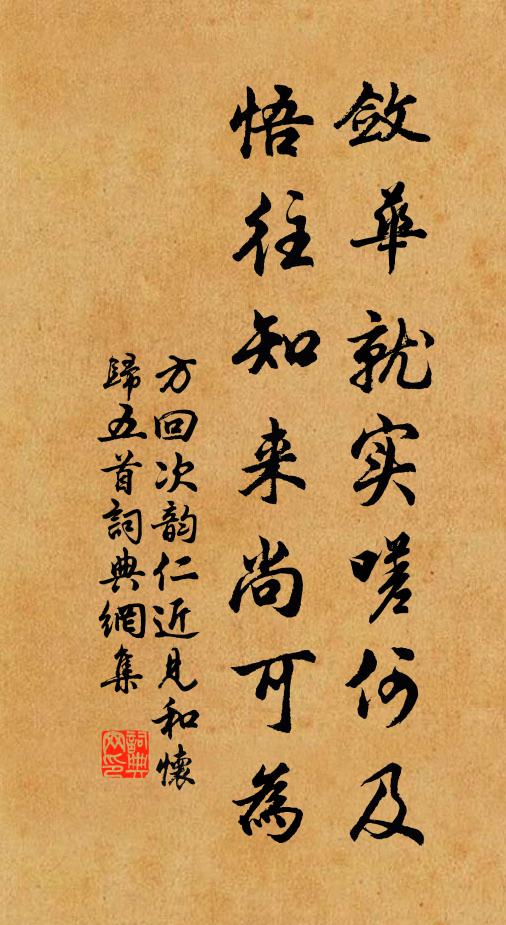 斂華就实嗟何及
悟往知来尚可為
方回次韵仁近見和懷
歸五首詞典網集
詞典網印